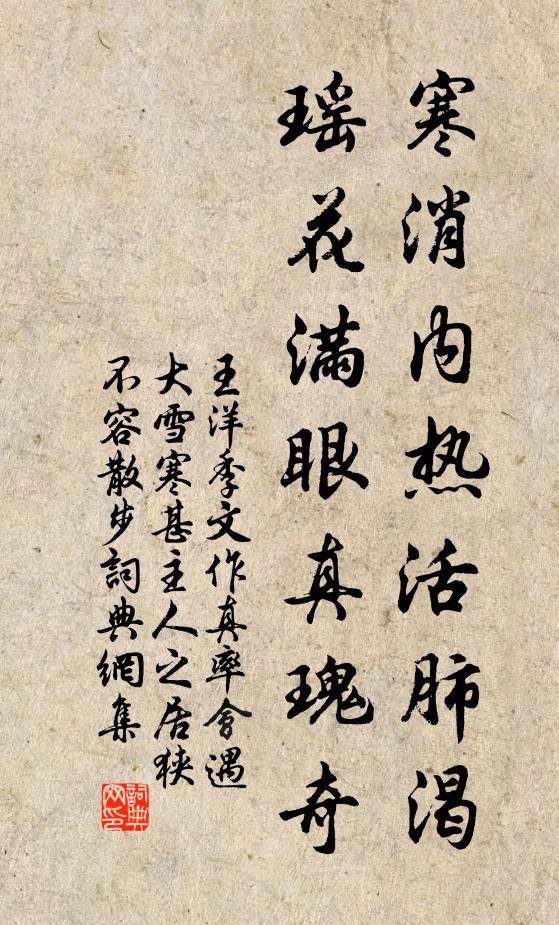 寒消内热活肺渴
瑶花满眼真瑰奇
王洋季文作真率會遇
大雪寒甚主人之居狹
不容散步詞典網集
詞典
网印